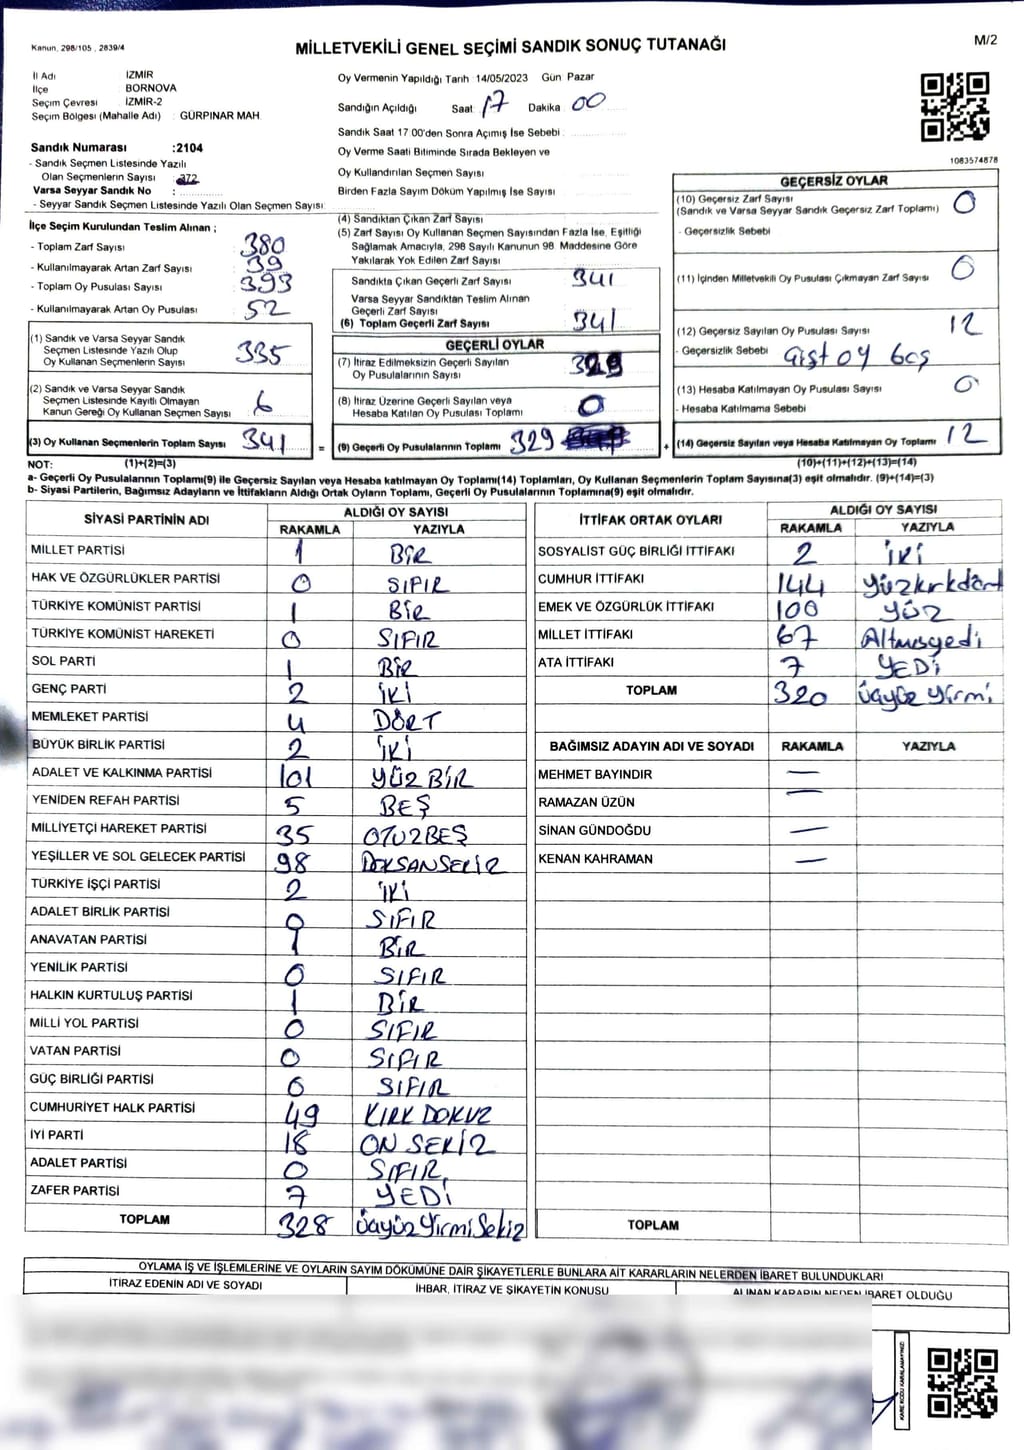 Kanun, 298/105 , 2839/4
MİLLETVEKİLİ GENEL SEÇİMİ SANDIK SONUÇ TUTANAĞI
M/2
İl Adı İZMİR
İlçe BORNOVA
Seçim Çevresi İZMİR-2
Seçim Bölgesi (Mahalle Adı) : GÜRPINAR MAH.
Sandık Numarası :2104
- Sandık Seçmen Listesinde Yazılı
Olan Seçmenlerin Sayısı : 372
Varsa Seyyar Sandık No :
- Seyyar Sandık Seçmen Listesinde Yazılı Olan Seçmen Sayısı:
Oy Vermenin Yapıldığı Tarih 14/05/2023 Gün Pazar
Sandığın Açıldığı Saat: 17 Dakika 00
Sandık Saat 17 00'den Sonra Açımış İse Sebebi :
Oy Verme Saati Bitiminde Sırada Bekleyen ve
Oy Kullandırılan Seçmen Sayısı
Birden Fazla Sayım Döküm Yapılmış İse Sayısı
1083574878
İlçe Seçim Kurulundan Teslim Alınan ;
- Toplam Zarf Sayısı 380
- Kullanılmayarak Artan Zarf Sayısı 39
- Toplam Oy Pusulası Sayısı 393
- Kullanılmayarak Artan Oy Pusulası 52
(1) Sandık ve Varsa Seyyar Sandık
Seçmen Listesinde Yazılı Olup
Oy Kullanan Seçmenlerin Sayısı 335
(2) Sandık ve Varsa Seyyar Sandık
Seçmen Listesinde Kayıtlı Olmayan
Kanun Gereği Oy Kullanan Seçmen Sayısı 6
(3) Oy Kullanan Seçmenlerin Toplam Sayısı 341 =
(4) Sandıktan Çıkan Zarf Sayısı
(5) Zarf Sayısı Oy Kullanan Seçmen Sayısından Fazla İse, Eşitliği
Sağlamak Amacıyla, 298 Sayılı Kanunun 98. Maddesine Göre
Yakılarak Yok Edilen Zarf Sayısı
Sandıkta Çıkan Geçerli Zarf Sayısı 341
Varsa Seyyar Sandıktan Teslim Alınan
Geçerli Zarf Sayısı
(6) Toplam Geçerli Zarf Sayısı 341
GEÇERLİ OYLAR
(7) İtiraz Edilmeksizin Geçerli Sayılan
Oy Pusulalarının Sayısı 329
(8) İtiraz Üzerine Geçerli Sayılan veya
Hesaba Katılan Oy Pusulası Toplamı 0
(9) Geçerli Oy Pusulalarının Toplamı 329 +
GEÇERSİZ OYLAR
(10) Geçersiz Zarf Sayısı 0
(Sandık ve Varsa Seyyar Sandık Geçersiz Zarf Toplamı)
- Geçersizlik Sebebi
(11) İçinden Milletvekili Oy Pusulası Çıkmayan Zarf Sayısı 0
(12) Geçersiz Sayılan Oy Pusulası Sayısı 12
- Geçersizlik Sebebi boş
(13) Hesaba Katılmayan Oy Pusulası Sayısı 0
- Hesaba Katılmama Sebebi
(14) Geçersiz Sayılan veya Hesaba Katılmayan Oy Toplamı 12
NOT: (1)+(2)=(3) (10)+(11)+(12)+(13)=(14)
a- Geçerli Oy Pusulalarının Toplamı(9) ile Geçersiz Sayılan veya Hesaba katılmayan Oy Toplamı(14) Toplamları, Oy Kullanan Seçmenlerin Toplam Sayısına(3) eşit olmalıdır. (9)+(14)=(3)
b- Siyasi Partilerin, Bağımsız Adayların ve İttifakların Aldığı Ortak Oyların Toplamı, Geçerli Oy Pusulalarının Toplamına(9) eşit olmalıdır.
SİYASİ PARTİNİN ADI ALDIĞI OY SAYISI
RAKAMLA YAZIYLA
MİLLET PARTİSİ 1 BİR
HAK VE ÖZGÜRLÜKLER PARTİSİ 0 SIFIR
TÜRKİYE KOMÜNİST PARTİSİ 1 BİR
TÜRKİYE KOMÜNİST HAREKETİ 0 SIFIR
SOL PARTİ 1 BİR
GENÇ PARTİ 2 İKİ
MEMLEKET PARTİSİ 4 DÖRT
BÜYÜK BİRLİK PARTİSİ 2 İKİ
ADALET VE KALKINMA PARTİSİ 101 YÜZ BİR
YENİDEN REFAH PARTİSİ 5 BEŞ
MİLLİYETÇİ HAREKET PARTİSİ 35 OTUZBEŞ
YEŞİLLER VE SOL GELECEK PARTİSİ 98 DOKSANSEKİZ
TÜRKİYE İŞÇİ PARTİSİ 2 İKİ
ADALET BİRLİK PARTİSİ 0 SIFIR
ANAVATAN PARTİSİ 1 BİR
YENİLİK PARTİSİ 0 SIFIR
HALKIN KURTULUŞ PARTİSİ 1 BİR
MİLLİ YOL PARTİSİ 0 SIFIR
VATAN PARTİSİ 0 SIFIR
GÜÇ BİRLİĞİ PARTİSİ 0 SIFIR
CUMHURİYET HALK PARTİSİ 49 KIRK DOKUZ
İYİ PARTİ 18 ON SEKİZ
ADALET PARTİSİ 0 SIFIR
ZAFER PARTİSİ 7 YEDİ
TOPLAM 328 üçyüz Yirmi Sekiz
İTTİFAK ORTAK OYLARI ALDIĞI OY SAYISI
RAKAMLA YAZIYLA
SOSYALİST GÜÇ BİRLİĞİ İTTİFAKI 2 İKİ
CUMHUR İTTİFAKI 144 Yüzkırkdört
EMEK VE ÖZGÜRLÜK İTTİFAKI 100 YÜZ
MİLLET İTTİFAKI 67 Altmışyedi
ATA İTTİFAKI 7 YEDİ
TOPLAM 320 üçyüz yirmi
BAĞIMSIZ ADAYIN ADI VE SOYADI RAKAMLA YAZIYLA
MEHMET BAYINDIR —
RAMAZAN ÜZÜN —
SİNAN GÜNDOĞDU —
KENAN KAHRAMAN —
TOPLAM
OYLAMA İŞ VE İŞLEMLERİNE VE OYLARIN SAYIM DÖKÜMÜNE DAİR ŞİKAYETLERLE BUNLARA AİT KARARLARIN NELERDEN İBARET BULUNDUKLARI
İTİRAZ EDENİN ADI VE SOYADI
İHBAR, İTİRAZ VE ŞİKAYETİN KONUSU
ALINAN KARARIN NEDEN İBARET OLDUĞU
KARE KODU KARALAMAYINIZ!